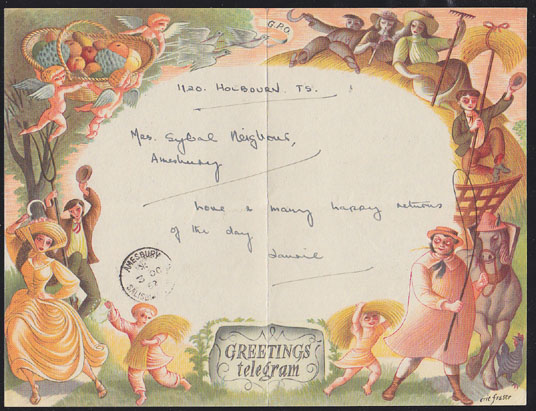 G.P.O.
1120. HOLBOURN T.S.
Mrs. Sybal Neighbour,
Amesbury
Love & many happy returns
of the day
AMESBURY
SALISBU
GREETINGS
telegram
eric fraser